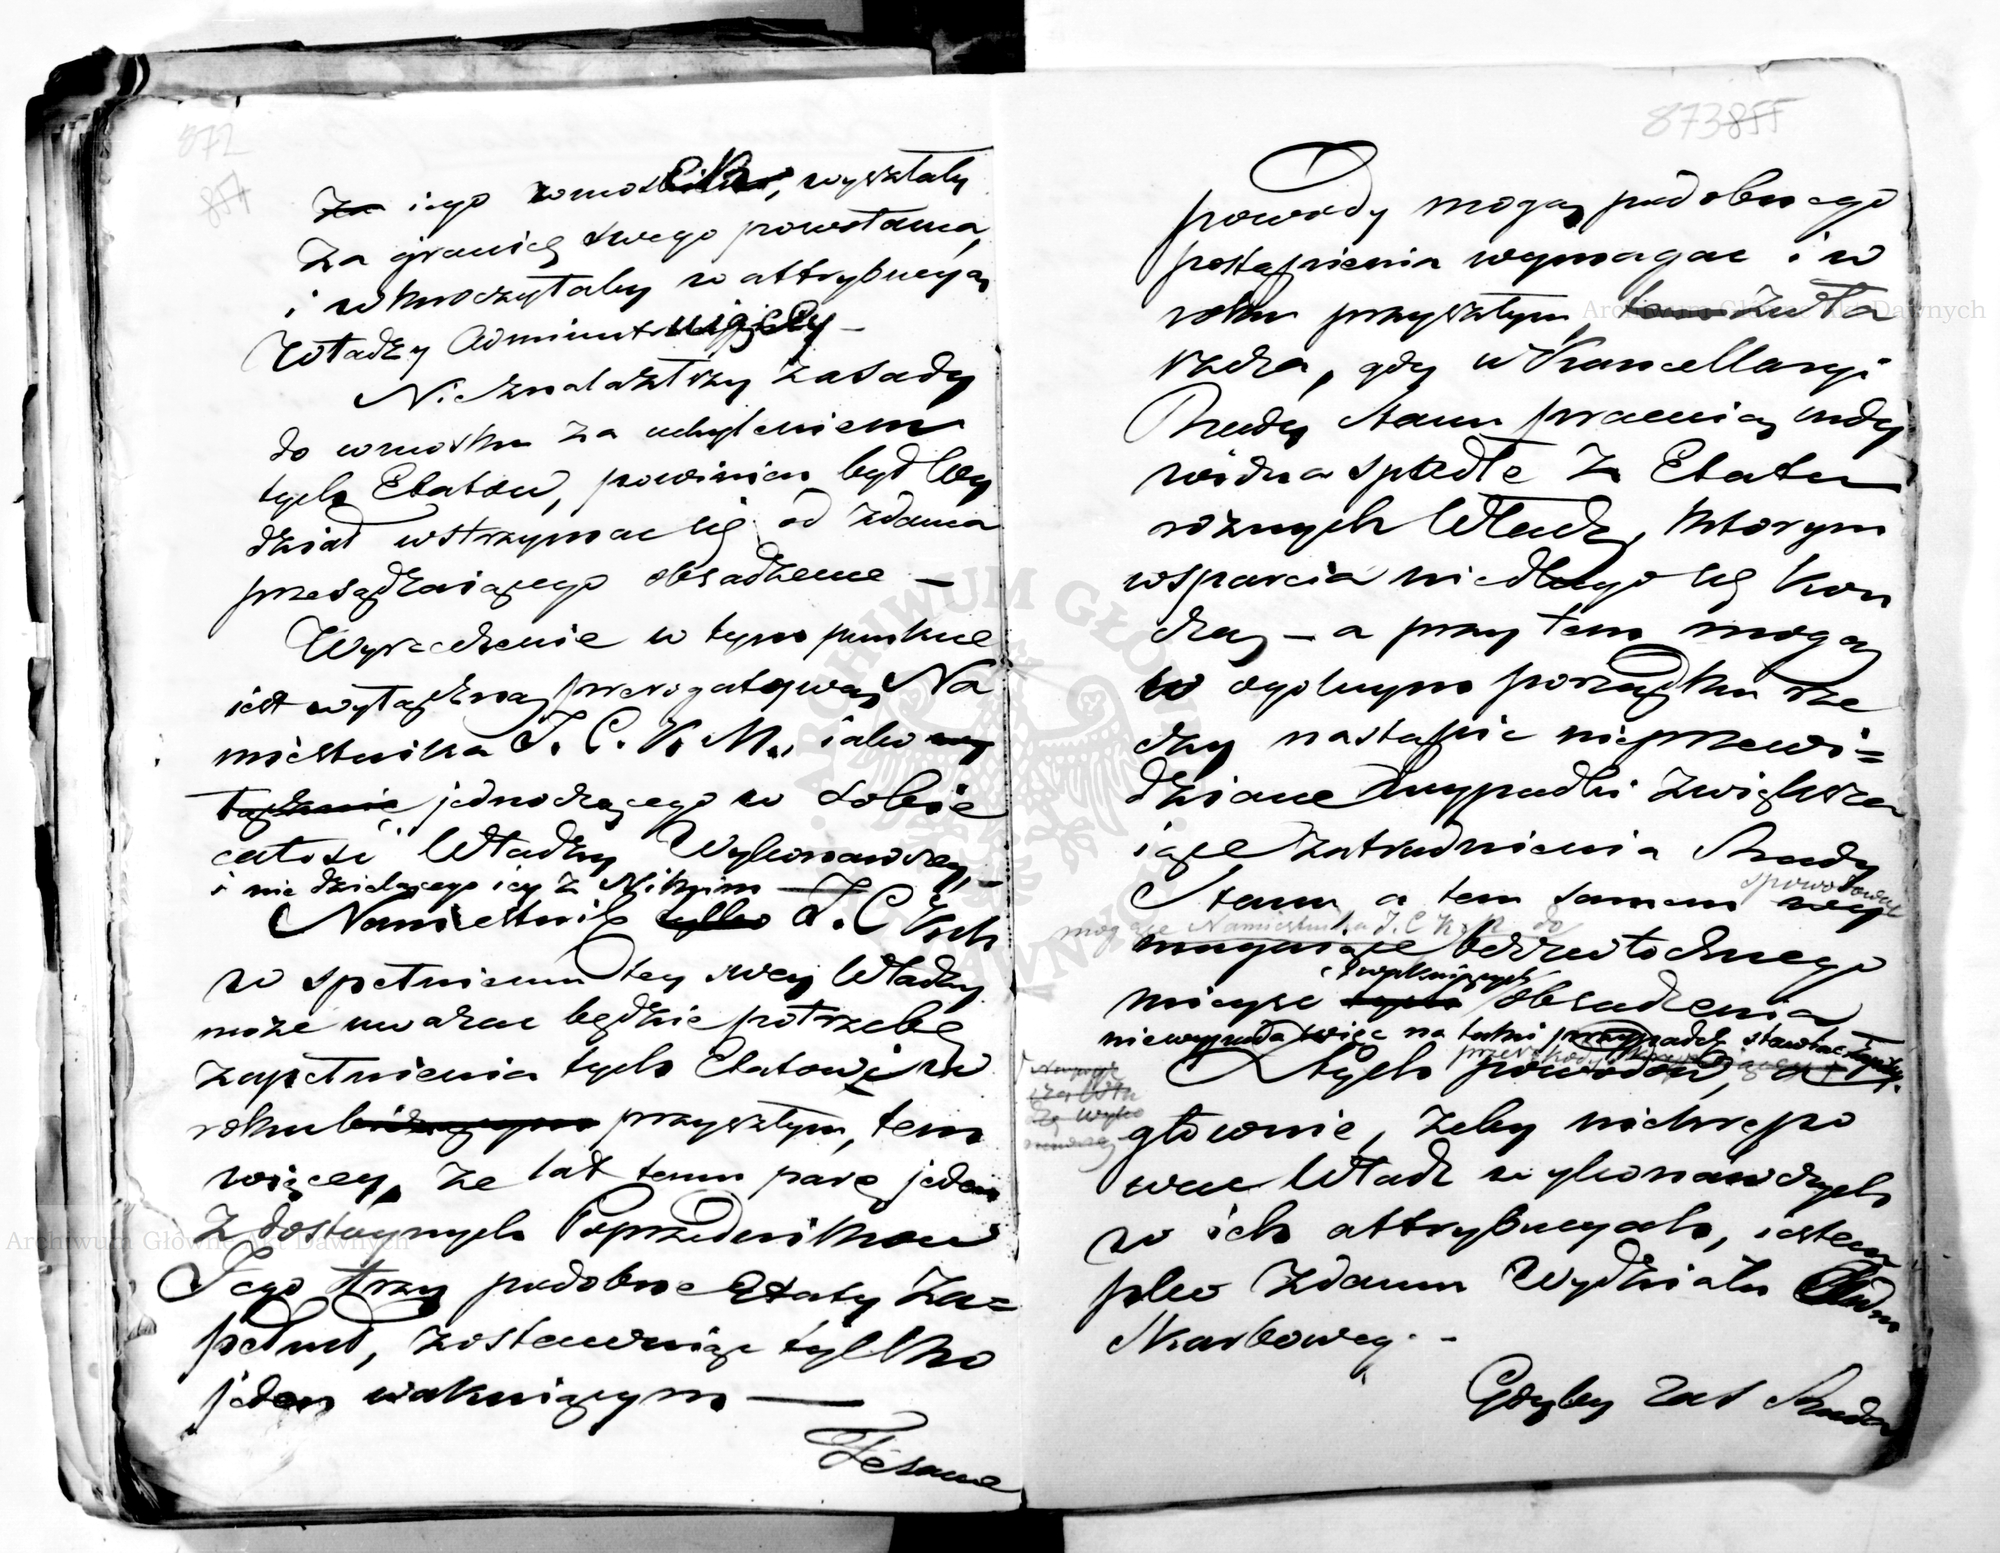 872
854
Za iego wnoski, wyszłaby
za granicę swego powołania,
i wkroczyłaby w attrybucyą
Władzy Administruiącey –
Nieznalazłszy zasady
do wniosku za uchyleniem
tych Etatów, powinien był Wy
dział wstrzymać się od zdania
przesądzaiącego obsadzenie –
Wyrzeczenie w tym punkcie
iest wyłączną prerogatywą Na
miestnika J. C. K. M., iako wy
łącznie jednoczącego w sobie
całość Władzy Wykonawczey, –
i nie dzielącego iey z Nikim –
Namiestnik tylko J. C. Kr.
w spełnieniu tey swey Władzy
może uważać będzie potrzebę
zapełnienia tych Etatów i w
roku bieżącym przyszłym, tem
więcey, że lat temu parę jeden
z dostoynych Poprzedników
Jego trzy podobne Etaty za=
pełnił, zostawuiąc tylko
jeden wakuiącym –
Też same
873 855
powody mogą podobnego
postąpienia wymagać i w
roku przyszłym, zwła
szcza, gdy w Kancellaryi
Rady Stanu pracuią indy
widua spadłe z Etatu
różnych Władz, którym
wsparcia niedługo się koń
czą – a przy tem mogą
w ogólnym porządku rze
czy nastąpić nieprzewi=
dziane wypadki zwiększa
iące zatrudnienia Rady
Stanu, a tem samem wy
spowodować
mogące Namiestnika J. C. K. M. do
magaiące bezzwłocznego
wakuiących
mieysc tych obsadzenia
niewypada więc na taki przypadek stawiać
Z tych powodów, a
głównie, żeby niekrępo
wać Władz wykonawczych
w ich attrybucyach, iestem
plw zdaniu Wydziału
Skarbowego. –
Gdyby zaś Rada
Archiwum Główne Akt Dawnych
Archiwum Główne Akt Dawnych
ARCHIWUM GŁÓWNE AKT DAWNYCH